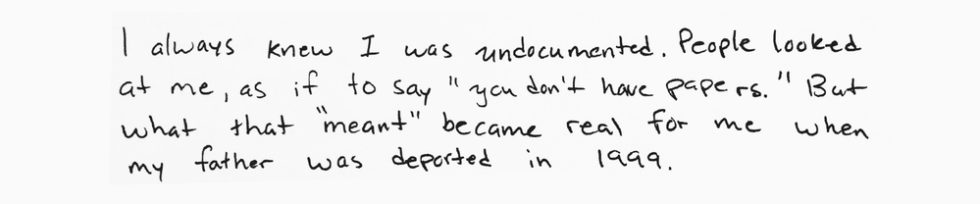 I always knew I was undocumented. People looked
at me, as if to say "you don't have papers." But
what that "meant" became real for me when
my father was deported in 1999.